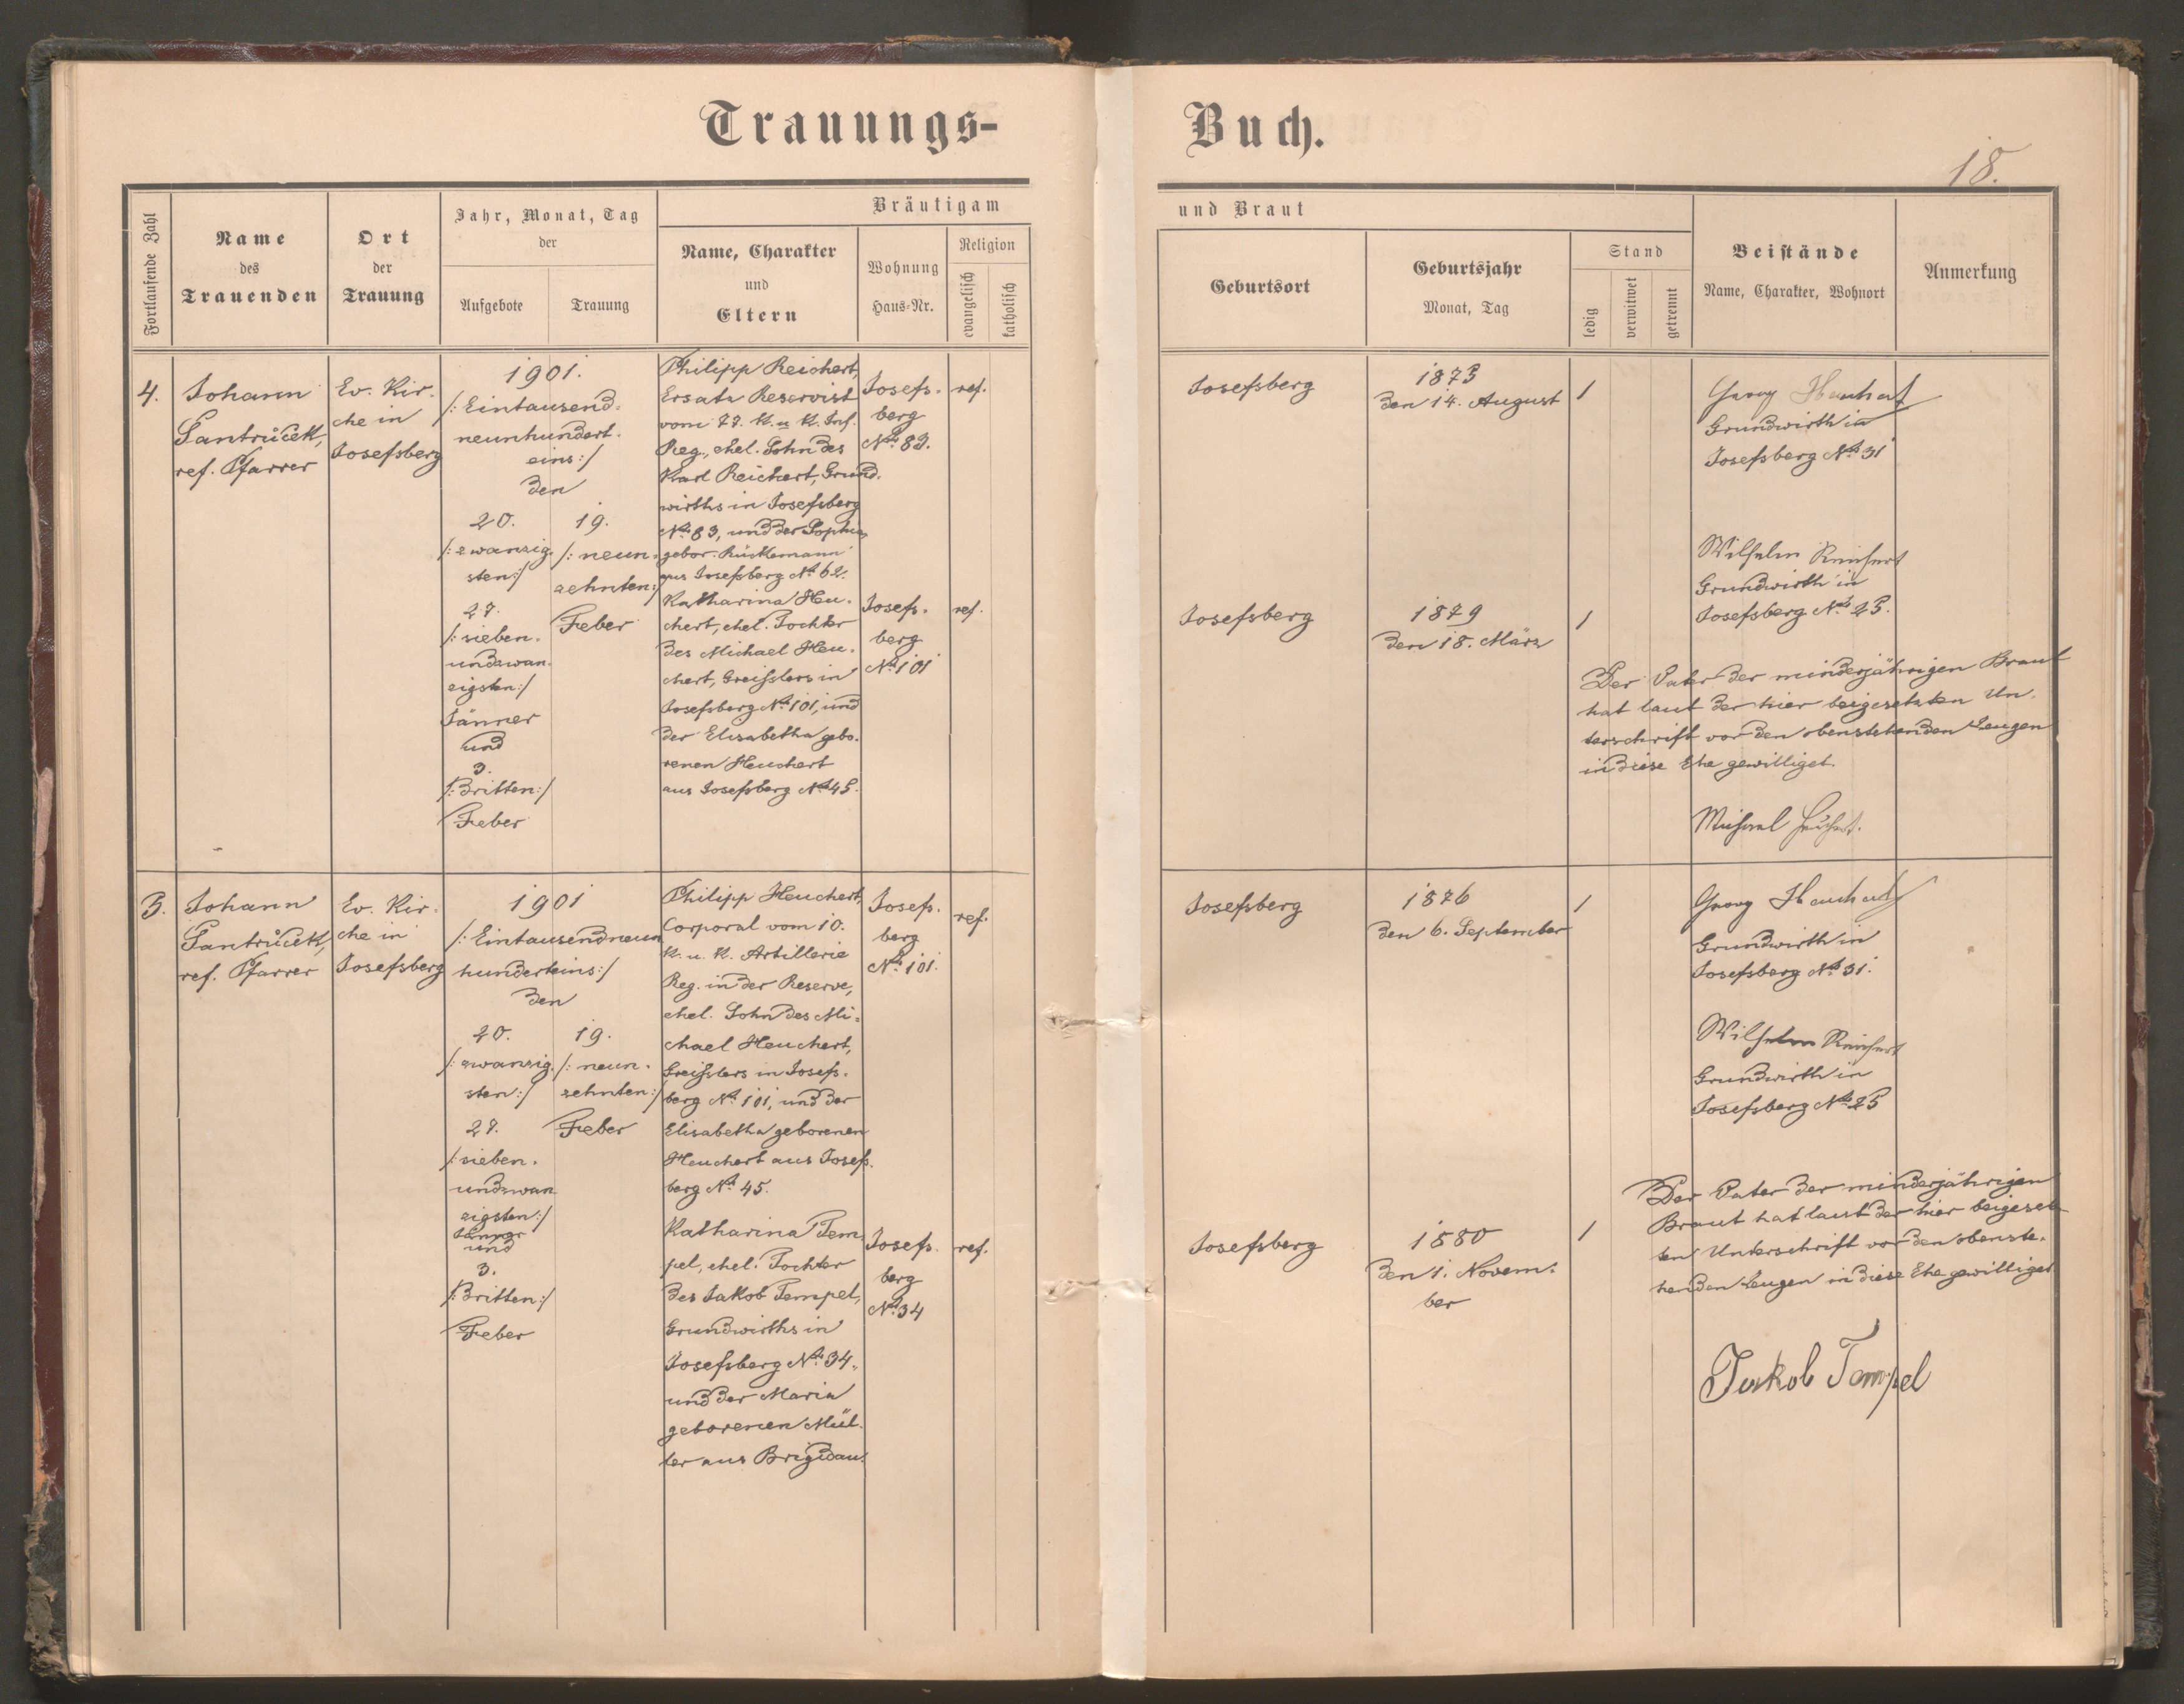 Trauungs-
Buch.
18.
Fortlaufende Zahl
Name
des
Trauenden
Ort
der
Trauung
Jahr, Monat, Tag
der
Aufgebote
Trauung
Bräutigam
Name, Charakter
und
Eltern
Wohnung
Haus-Nr.
Religion
evangelisch
katholisch
und Braut
Geburtsort
Geburtsjahr
Monat, Tag
Stand
ledig
verwitwet
getrennt
Beistände
Name, Charakter, Wohnort
Anmerkung
4.
Johann
Santrůček,
ref. Pfarrer
Ev. Kir-
che in
Josefsberg
1901.
/: Eintausend-
neunhundert-
eins :/
den
20.
/: zwanzig-
sten :/
27.
/: sieben-
undzwan-
zigsten :/
Jänner
und
3.
/: dritten :/
Feber
19.
/: neun-
zehnten :/
Feber
Philipp Reichert,
Ersatz Reservist
vom 77. K. u. K. Inf.
Reg., ehel. Sohn des
Karl Reichert, Grund-
wirths in Josefsberg
No. 83, und der Sophia
gebor.
aus Josefsberg No. 62.
Josefs-
berg
No. 83.
ref.
Katharina Heu-
chert, ehel. Tochter
des Michael Heu-
chert, Greisslers in
Josefsberg No. 101, und
der Elisabetha gebo-
renen Heuchert
aus Josefsberg No. 45.
Josefs-
berg
No. 101
ref.
Josefsberg
1873
den 14. August
1
Josefsberg
1879
den 18. März
1
Georg Heuchert
Grundwirth in
Josefsberg No. 31
Wilhelm Reichert
Grundwirth in
Josefsberg No. 25.
Der Vater der minderjährigen Braut
hat laut der hier beigesetzten Un-
terschrift vor den obenstehenden Zeugen
in diese Ehe gewilliget.
Michael Heuchert.
5.
Johann
Santrůček,
ref. Pfarrer
Ev. Kir-
che in
Josefsberg
1901
/: Eintausendneun
hunderteins :/
den
20.
/: zwanzig-
sten :/
27.
/: sieben-
undzwan
zigsten :/
Jänner
und
3.
/: dritten :/
Feber
19.
/: neun-
zehnten :/
Feber
Philipp Heuchert,
Corporal vom 10.
K. u. K. Artillerie
Reg. in der Reserve,
ehel. Sohn des Mi-
chael Heuchert,
Greisslers in Josefs-
berg No. 101, und der
Elisabetha geborenen
Heuchert aus Josefs-
berg No. 45.
Josefs-
berg
No. 101.
ref.
Katharina Tem
pel, ehel. Tochter
des Jakob Tempel,
Grundwirths in
Josefsberg No. 34.,
und der Maria
geborenen Mül-
ler aus Brigidau.
Josefs-
berg
No. 34
ref.
Josefsberg
1876
den 6. September
1
Josefsberg
1880
den 1. Novem-
ber
1
Georg Heuchert
Grundwirth in
Josefsberg No. 31.
Wilhelm Reichert
Grundwirth in
Josefsberg No. 25
Der Vater der minderjährigen
Braut hat laut der hier beigesetz-
ten Unterschrift vor den obenste-
henden Zeugen in diese Ehe gewilliget
Jakob Tempel